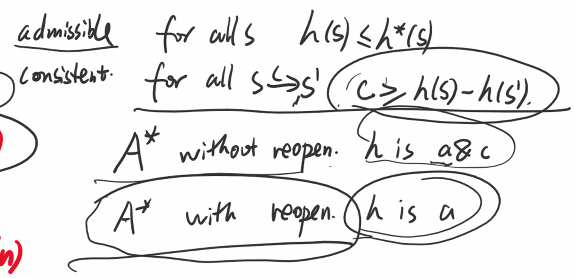 admissible for all s h(s) ≤ h*(s)
consistent. for all s →ᶜ s' c ≥ h(s) - h(s').
A* without reopen. h is a & c
A* with reopen. h is a
n)